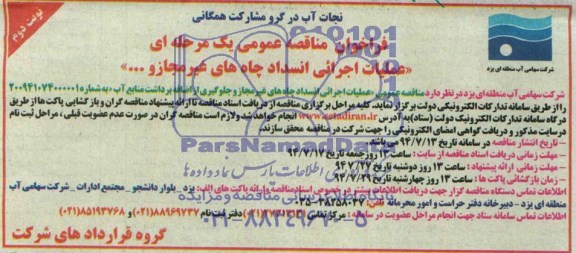 نوبت دوم
نجات آب در گرو مشارکت همگانی
فراخوان مناقصه عمومی یک مرحله ای
«عملیات اجرائی انسداد چاه های غیرمجاز و ...»
شرکت سهامی آب منطقه ای یزد
شرکت سهامی آب منطقه ای یزد در نظر دارد مناقصه عمومی «عملیات اجرائی انسداد چاه های غیرمجاز و جلوگیری از اضافه برداشت منابع آب» به شماره ۲۰۰۹۴۱۰۷۴۰۰۰۰۰۱
را از طریق سامانه تدارکات الکترونیکی دولت برگزار نماید. کلیه مراحل برگزاری مناقصه از دریافت اسناد مناقصه تا ارائه پیشنهاد مناقصه گران و بازگشایی پاکت ها از طریق
درگاه سامانه تدارکات الکترونیک دولت (ستاد) به آدرس www.setadiran.ir انجام خواهد شد و لازم است مناقصه گران در صورت عدم عضویت قبلی، مراحل ثبت نام
در سایت مذکور و دریافت گواهی امضای الکترونیکی را جهت شرکت در مناقصه محقق سازند.
- تاریخ انتشار مناقصه در سامانه تاریخ ۹۴/۷/۱۲ می باشد.
- مهلت زمانی دریافت اسناد مناقصه از سایت: ساعت ۱۳ روز جمعه تاریخ ۹۴/۷/۱۷
- مهلت زمانی ارائه پیشنهاد: ساعت ۱۳ روز دوشنبه تاریخ ۹۴/۷/۲۷
- زمان بازگشایی پاکت ها: ساعت ۱۳ روز چهارشنبه تاریخ ۹۴/۷/۲۹
- اطلاعات تماس دستگاه مناقصه گزار جهت دریافت اطلاعات بیشتر در خصوص اسناد مناقصه و ارائه پاکت های الف: یزد_ بلوار دانشجو _ مجتمع ادارات _ شرکت سهامی آب
منطقه ای یزد - دبیرخانه دفتر حراست و امور محرمانه تلفن: ۳۸۲۵۸۰۳۷-۰۳۵
- اطلاعات تماس سامانه ستاد جهت انجام مراحل عضویت در سامانه: مرکز تماس دفتر ثبت نام ۸۸۹۶۹۷۳۷(۰۲۱) و ۸۵۱۹۳۷۶۸(۰۲۱)
گروه قرارداد های شرکت
ParsNamadData
پایگاه اطلاع رسانی مناقصه و مزایده
۰۲۱-۸۸۳۴۹۶۷۰-۵